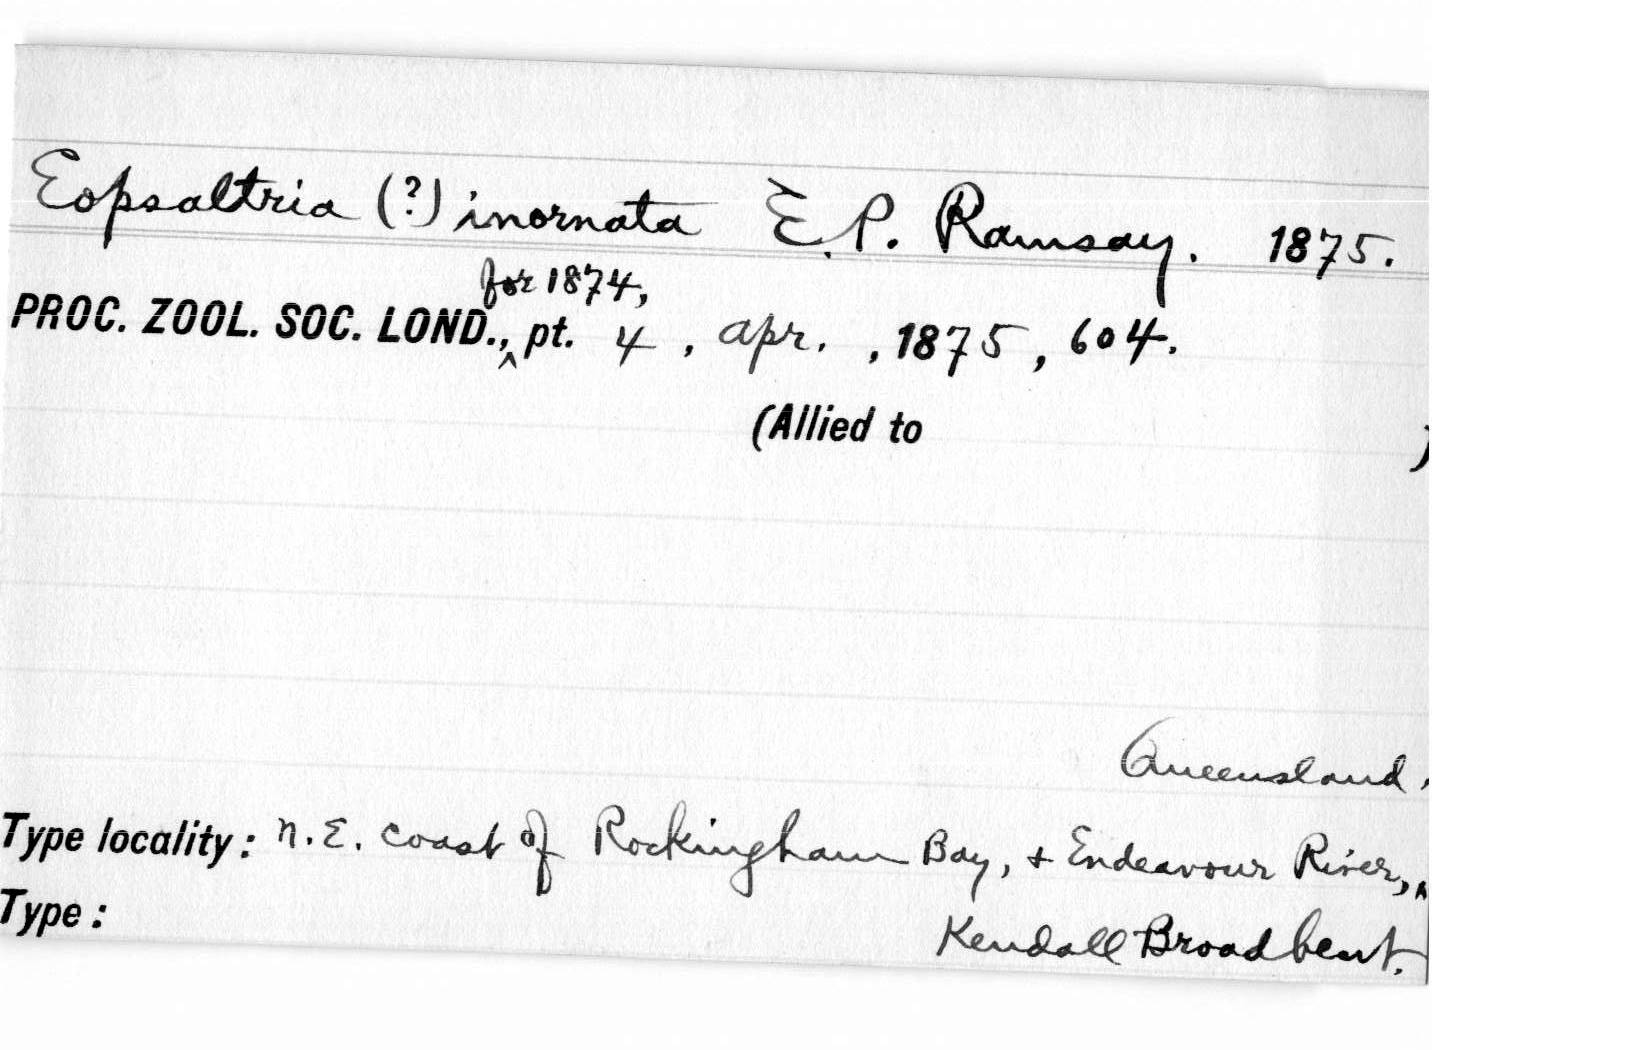 Eopsaltria (?) inornata E. P. Ramsay. 1875.
for 1874,
PROC. ZOOL. SOC. LOND.,^ pt. 4, Apr., 1875, 604.
(Allied to )
Queensland,
Type locality: N.E. coast of Rockingham Bay, + Endeavour River,^
Type: Kendall Broadbent.